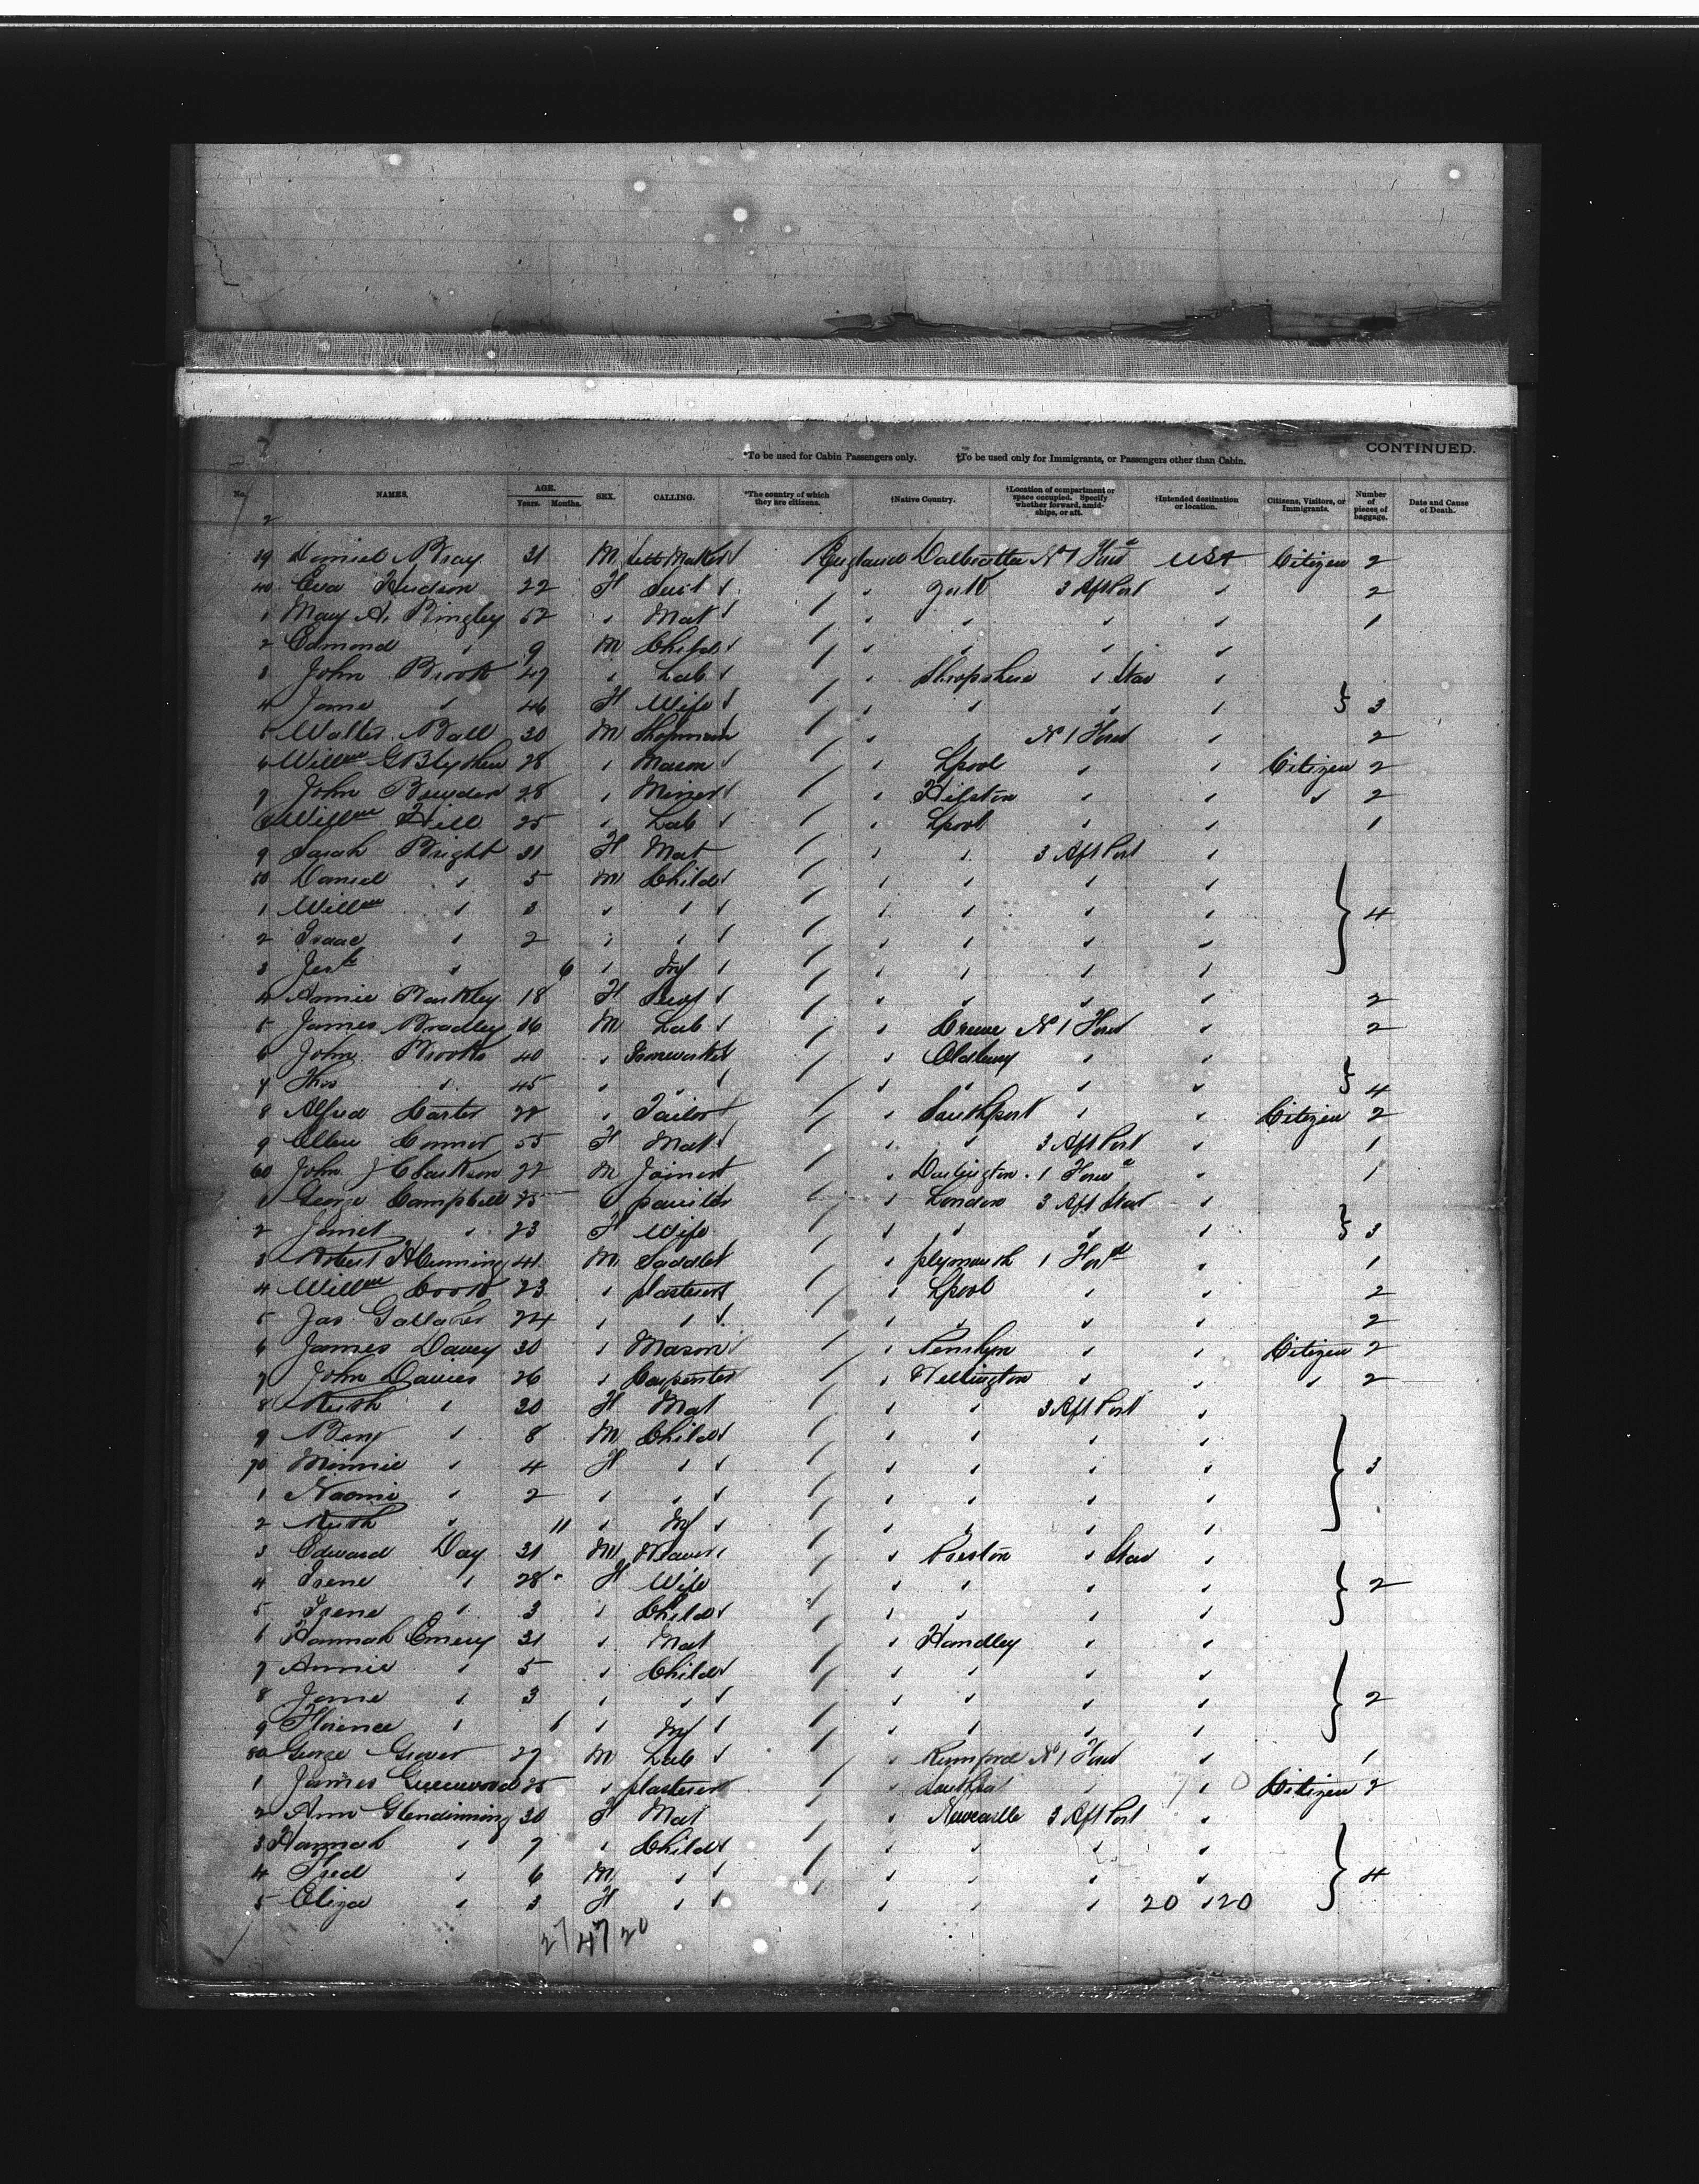 CONTINUED.
*To be used for Cabin Passengers only. ‡To be used only for Immigrants, or Passengers other than Cabin.
No. NAMES. AGE. Years. Months. SEX. CALLING. *The country of which they are citizens. †Native Country. †Location of compartment or space occupied. Specify whether forward, amidships, or aft. †Intended destination or location. Citizens, Visitors, or Immigrants. Number of pieces of baggage. Date and Cause of Death.
39 Daniel Bray 31 M England Dalbeattie No 1 USA Citizen 2
40 Eva Hudson 22 F York 3 Aft Port 2
1 Mary A. Bingley 52 Mat 1
2 Edmond 9 M Child
3 John Brook 47 Lab Shropshire Star
4 Jane 46 F Wife } 3
5 Walter Ball 30 M Shopman No 1 Forwd 2
6 Willm G Blythen 28 Mason Lpool Citizen 2
7 John Bowden 28 Miner 2
8 Willm Hill 25 Lab Lpool 1
9 Sarah Bright 31 F Mat 3 Aft Port
50 Daniel 5 M Child
1 Willm 3 } 4
2 Isaac 2
3 6 Inf
4 Annie 18 F Servt 2
5 James Bradley 36 M Lab Crewe No 1 Forwd 2
6 John Brooks 40 Ironworker Oldbury
7 Thos 45 } 4
8 Alfred Carter 22 Tailor Southport Citizen 2
9 Ellen Connor 55 F Mat 3 Aft Port 1
60 John J Clarkson 22 M Joiner Darlington 1 1
1 George Campbell 25 painter London 3 Aft Star
2 Janet 23 F Wife } 3
3 Robert 41 M Saddler plymouth 1 1
4 Willm Cook 23 plasterer Lpool 2
5 Jas Gallaher 24 2
6 James Davey 30 Mason Penrhyn Citizen 2
7 John Davies 26 Carpenter Wellington 2
8 Ruth 30 F Mat 3 Aft Port
9 Benj 8 M Child
70 Minnie 4 F } 3
1 Naomi 2
2 Ruth 11 Inf
3 Edward Day 31 M Weaver Preston Star
4 Irene 28 F Wife } 2
5 Irene 3 Child
6 Hannah Emery 31 Mat Handley
7 Annie 5 Child
8 Jane 3 } 2
9 Florence 6 Inf
80 George Grover 27 M Lab Rumford No 1 Forwd 1
1 James Greenwood 25 plasterer Southport Citizen 2
2 Ann Glendinning 30 F Mat Newcastle 3 Aft Port
3 Hannah 7 Child
4 Fred 6 M } 4
5 Eliza 3 F 20 120
27 47 20